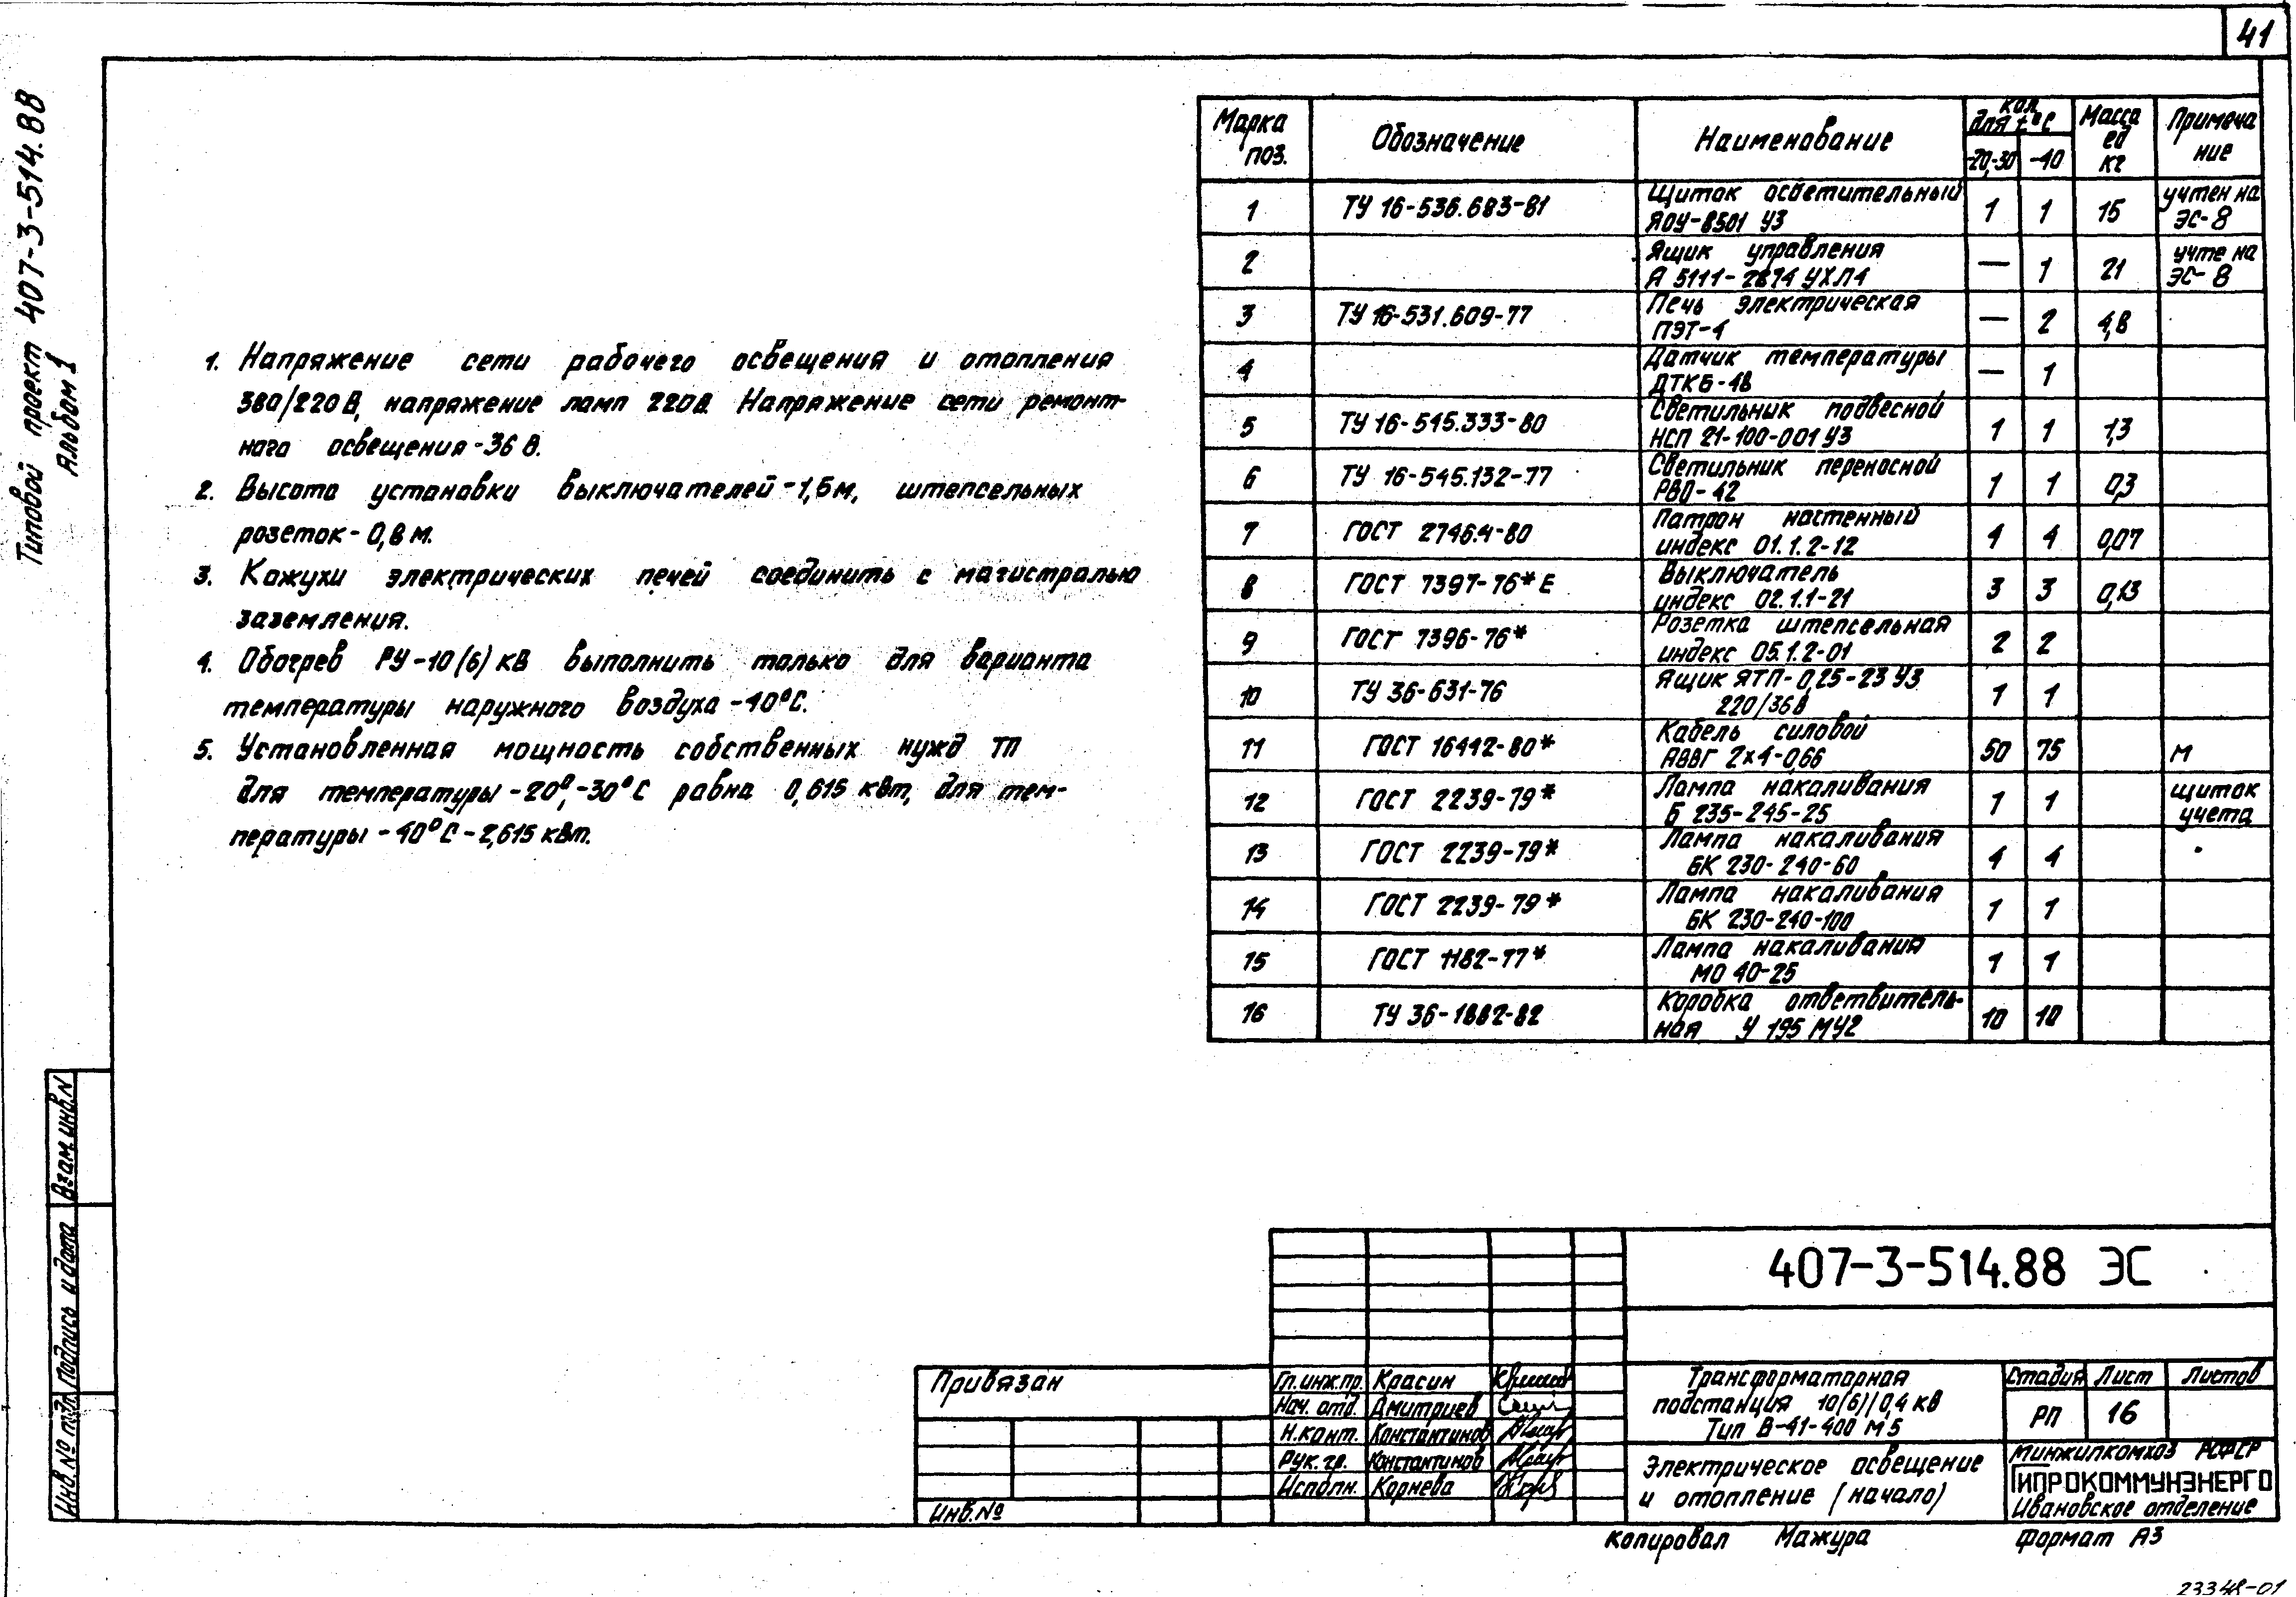 41
Типовой проект 407-3-514.88
Альбом 1
1. Напряжение сети рабочего освещения и отопления
380/220 В, напряжение ламп 220В. Напряжение сети ремонт-
ного освещения - 36 В.
2. Высота установки выключателей - 1,5 м, штепсельных
розеток - 0,8 м.
3. Кожухи электрических печей соединить с магистралью
заземления.
4. Обогрев РУ-10(6) кВ выполнить только для варианта
температуры наружного воздуха -40°С.
5. Установленная мощность собственных нужд ТП
для температуры -20°,-30°С равна 0,615 кВт, для тем-
пературы -40°С - 2,615 кВт.
Марка поз. Обозначение Наименование кол. для t°С -20,-30 -40 Масса ед кг Примечание
1 ТУ 16-536.683-81 Щиток осветительный ЯОУ-8501 У3 1 1 15 учтен на ЭС-8
2 Ящик управления Я 5111-2874 УХЛ4 — 1 21 учте на ЭС-8
3 ТУ 16-531.609-77 Печь электрическая ПЭТ-4 — 2 4,8
4 Датчик температуры ДТКБ-48 — 1
5 ТУ 16-545.333-80 Светильник подвесной НСП 21-100-001 У3 1 1 1,3
6 ТУ 16-545.132-77 Светильник переносной РВО-42 1 1 0,3
7 ГОСТ 2746.4-80 Патрон настенный индекс 01.1.2-12 4 4 0,07
8 ГОСТ 7397-76* Е Выключатель индекс 02.1.1-21 3 3 0,13
9 ГОСТ 7396-76* Розетка штепсельная индекс 05.1.2-01 2 2
10 ТУ 36-631-76 Ящик ЯТП-0,25-23 У3 220/36В 1 1
11 ГОСТ 16442-80* Кабель силовой АВВГ 2x4-0,66 50 75 м
12 ГОСТ 2239-79* Лампа накаливания Б 235-245-25 1 1 щиток учета
13 ГОСТ 2239-79* Лампа накаливания БК 230-240-60 4 4
14 ГОСТ 2239-79* Лампа накаливания БК 230-240-100 1 1
15 ГОСТ 1182-77* Лампа накаливания МО 40-25 1 1
16 ТУ 36-1882-82 Коробка ответвитель-ная У 195 МУ2 10 10
Взам. инв. N
Подпись и дата
Инв. № подл.
407-3-514.88 ЭС
Привязан
Инв. №
Гл. инж. пр. Красин
Нач. отд. Дмитриев
Н. конт. Константинов
Рук. гр. Константинов
Исполн. Корнева
Трансформаторная
подстанция 10(6)/0,4 кВ
Тип В-41-400 М5
Стадия Лист Листов
РП 16
Электрическое освещение
и отопление (начало)
Минжилкомхоз РСФСР
ГИПРОКОММУНЭНЕРГО
Ивановское отделение
Копировал Мажура Формат А3
23348-01